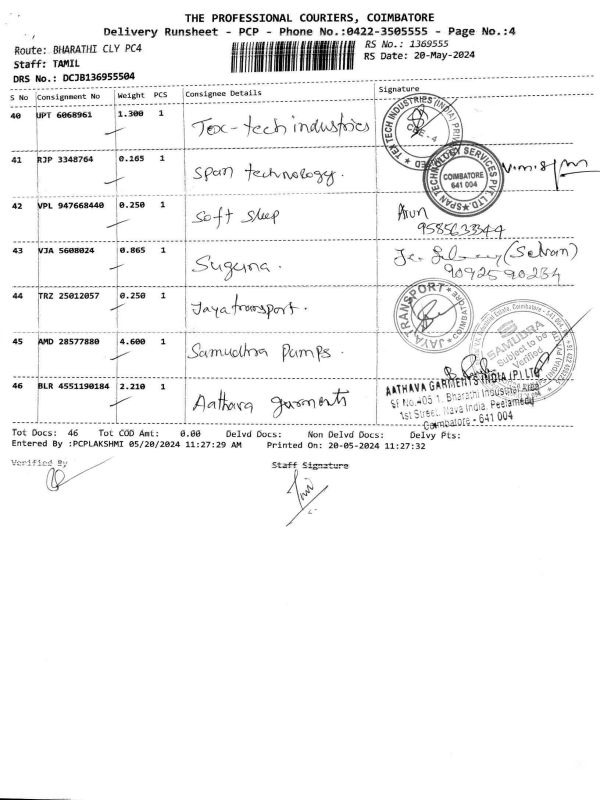 THE PROFESSIONAL COURIERS, COIMBATORE
Delivery Runsheet - PCP - Phone No.:0422-3505555 - Page No.:4
Route: BHARATHI CLY PC4
RS No.: 1369555
Staff: TAMIL
RS Date: 20-May-2024
DRS No.: DCJB136955504
S No Consignment No Weight PCS Consignee Details Signature
40 UPT 6068961 1.300 1 Tex-tech industries
TEX TECH INDUSTRIES (INDIA)
CBE-4
41 RJP 3348764 0.165 1 Span technology.
SPAN TECHNOLOGY SERVICES PVT. LTD.
COIMBATORE
641 004
42 VPL 947668440 0.250 1 Soft sleep Arun
9585633344
43 VJA 5608024 0.865 1 Suguna. (Selvan)
9092590234
44 TRZ 25012057 0.250 1 Jaya transport.
JAYA TRANSPORT
COIMBATORE
45 AMD 28577880 4.600 1 Samudhra Pumps.
SAMUDRA
Subject to be
Verified
46 BLR 4551190184 2.210 1 Aathava garments
AATHAVA GARMENTS INDIA (P) LTD
SF No.405 1, Bharathi Industrial
1st Street, Nava India, Peelamedu
Coimbatore - 641 004
Tot Docs: 46 Tot COD Amt: 0.00 Delvd Docs: Non Delvd Docs: Delvy Pts:
Entered By :PCPLAKSHMI 05/20/2024 11:27:29 AM Printed On: 20-05-2024 11:27:32
Verified By
Staff Signature